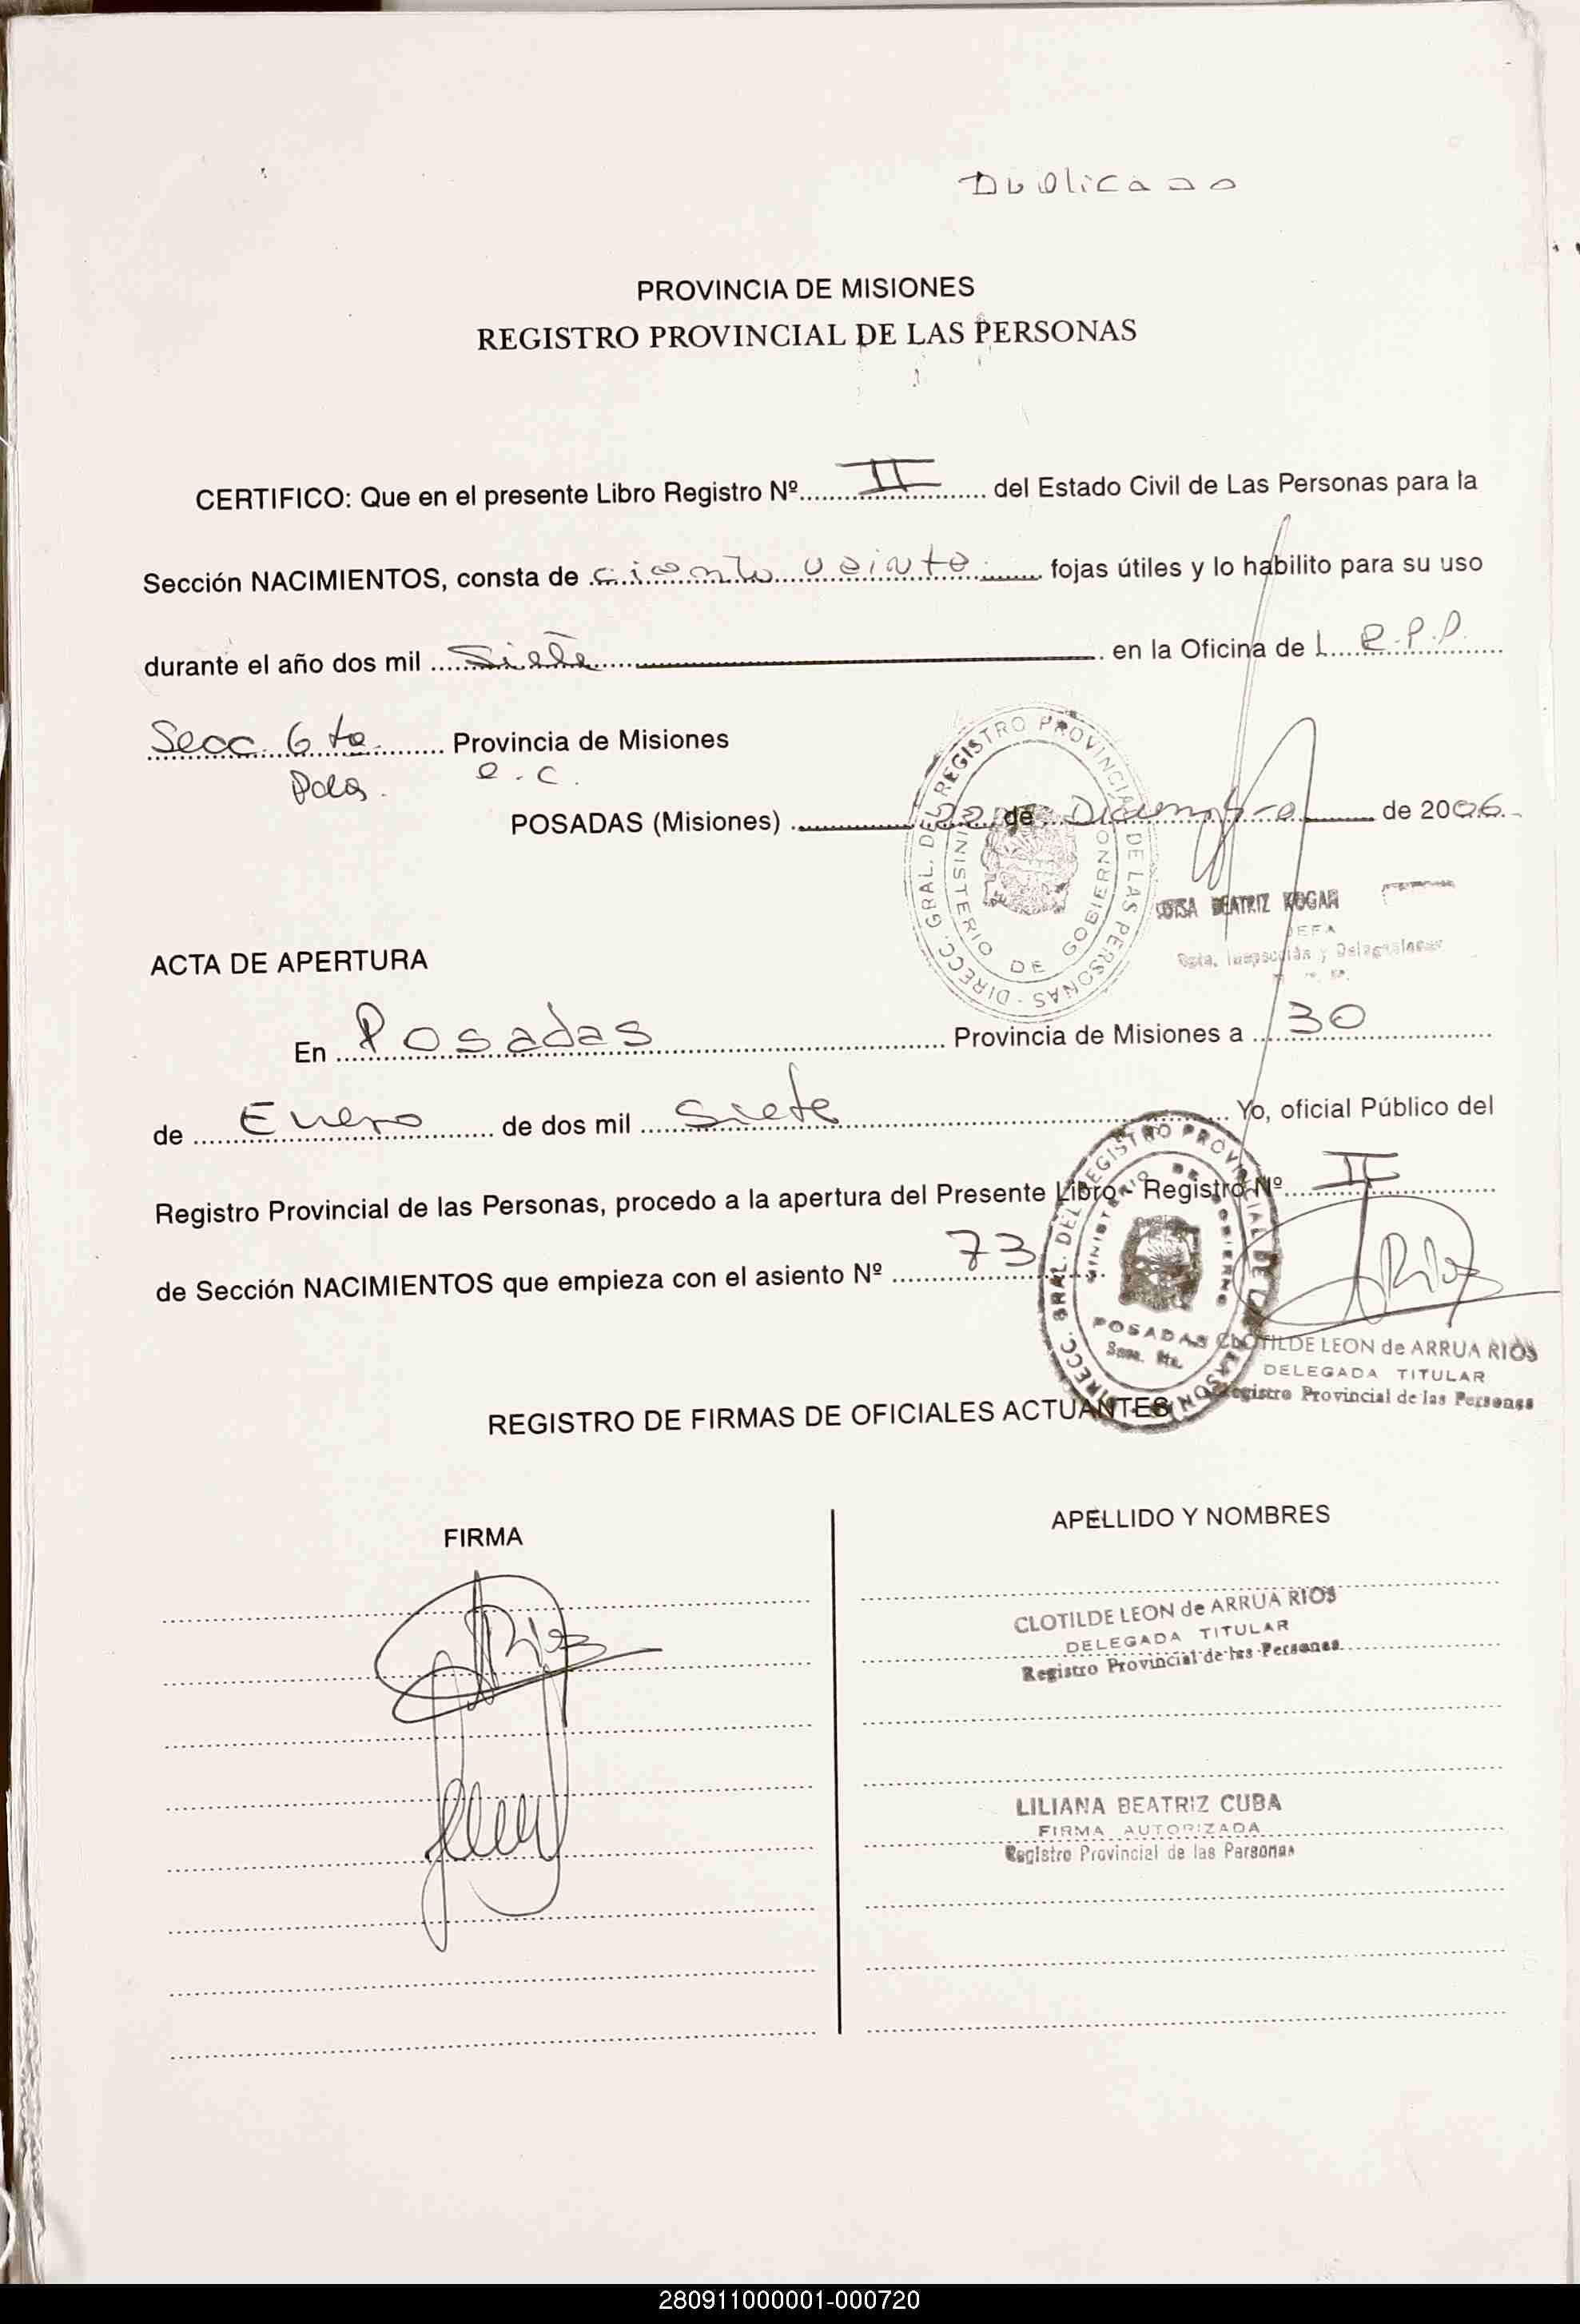 Duplicado
PROVINCIA DE MISIONES
REGISTRO PROVINCIAL DE LAS PERSONAS
CERTIFICO: Que en el presente Libro Registro Nº.......II....... del Estado Civil de Las Personas para la
Sección NACIMIENTOS, consta de ciento veinte fojas útiles y lo habilito para su uso
durante el año dos mil ....Siete.... en la Oficina de L....R.P.P.
Secc. 6 ta. ........ Provincia de Misiones
Pdas. e.c.
POSADAS (Misiones) ........ 22 de Diciembre de 2006.-
DIRECC. GRAL. DEL REGISTRO PROVINCIAL DE LAS PERSONAS - MINISTERIO DE GOBIERNO
BEATRIZ KOGAR
JEFA
Dpto. Inspección y Delegaciones
ACTA DE APERTURA
En ....Posadas.... Provincia de Misiones a ....30....
de ....Enero.... de dos mil ....Siete.... Yo, oficial Público del
Registro Provincial de las Personas, procedo a la apertura del Presente Libro - Registro Nº....II....
de Sección NACIMIENTOS que empieza con el asiento Nº ....73....
DIRECC. GRAL. DEL REGISTRO PROVINCIAL DE LAS PERSONAS
MINISTERIO DE GOBIERNO
POSADAS
Secc. 6ta.
CLOTILDE LEON de ARRUA RIOS
DELEGADA TITULAR
Registro Provincial de las Personas
REGISTRO DE FIRMAS DE OFICIALES ACTUANTES
FIRMA
APELLIDO Y NOMBRES
CLOTILDE LEON de ARRUA RIOS
DELEGADA TITULAR
Registro Provincial de las Personas
LILIANA BEATRIZ CUBA
FIRMA AUTORIZADA
Registro Provincial de las Personas
280911000001-000720